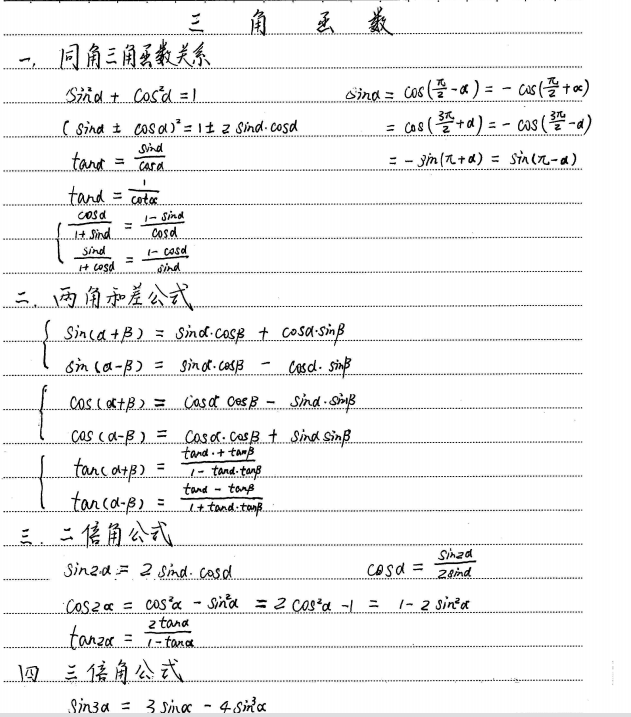 三 角 函 数
一. 同角三角函数关系
sin²α + cos²α = 1
sinα = cos(π/2 - α) = - cos(π/2 + α)
(sinα ± cosα)² = 1 ± 2 sinα·cosα
= cos(3π/2 + α) = - cos(3π/2 - α)
tanα = sinα/cosα
= - sin(π+α) = sin(π-α)
tanα = 1/cotα
cosα/(1+sinα) = (1-sinα)/cosα
sinα/(1+cosα) = (1-cosα)/sinα
二. 两角和差公式
sin(α+β) = sinα·cosβ + cosα·sinβ
sin(α-β) = sinα·cosβ - cosα·sinβ
cos(α+β) = cosα cosβ - sinα·sinβ
cos(α-β) = cosα·cosβ + sinα sinβ
tan(α+β) = (tanα·+tanβ)/(1-tanα·tanβ)
tan(α-β) = (tanα-tanβ)/(1+tanα·tanβ)
三. 二倍角公式
sin2α = 2 sinα·cosα
cosα = sin2α/2sinα
cos2α = cos²α - sin²α = 2cos²α - 1 = 1 - 2sin²α
tan2α = 2tanα/(1-tanα)
四 三倍角公式
sin3α = 3sinα - 4sin³α